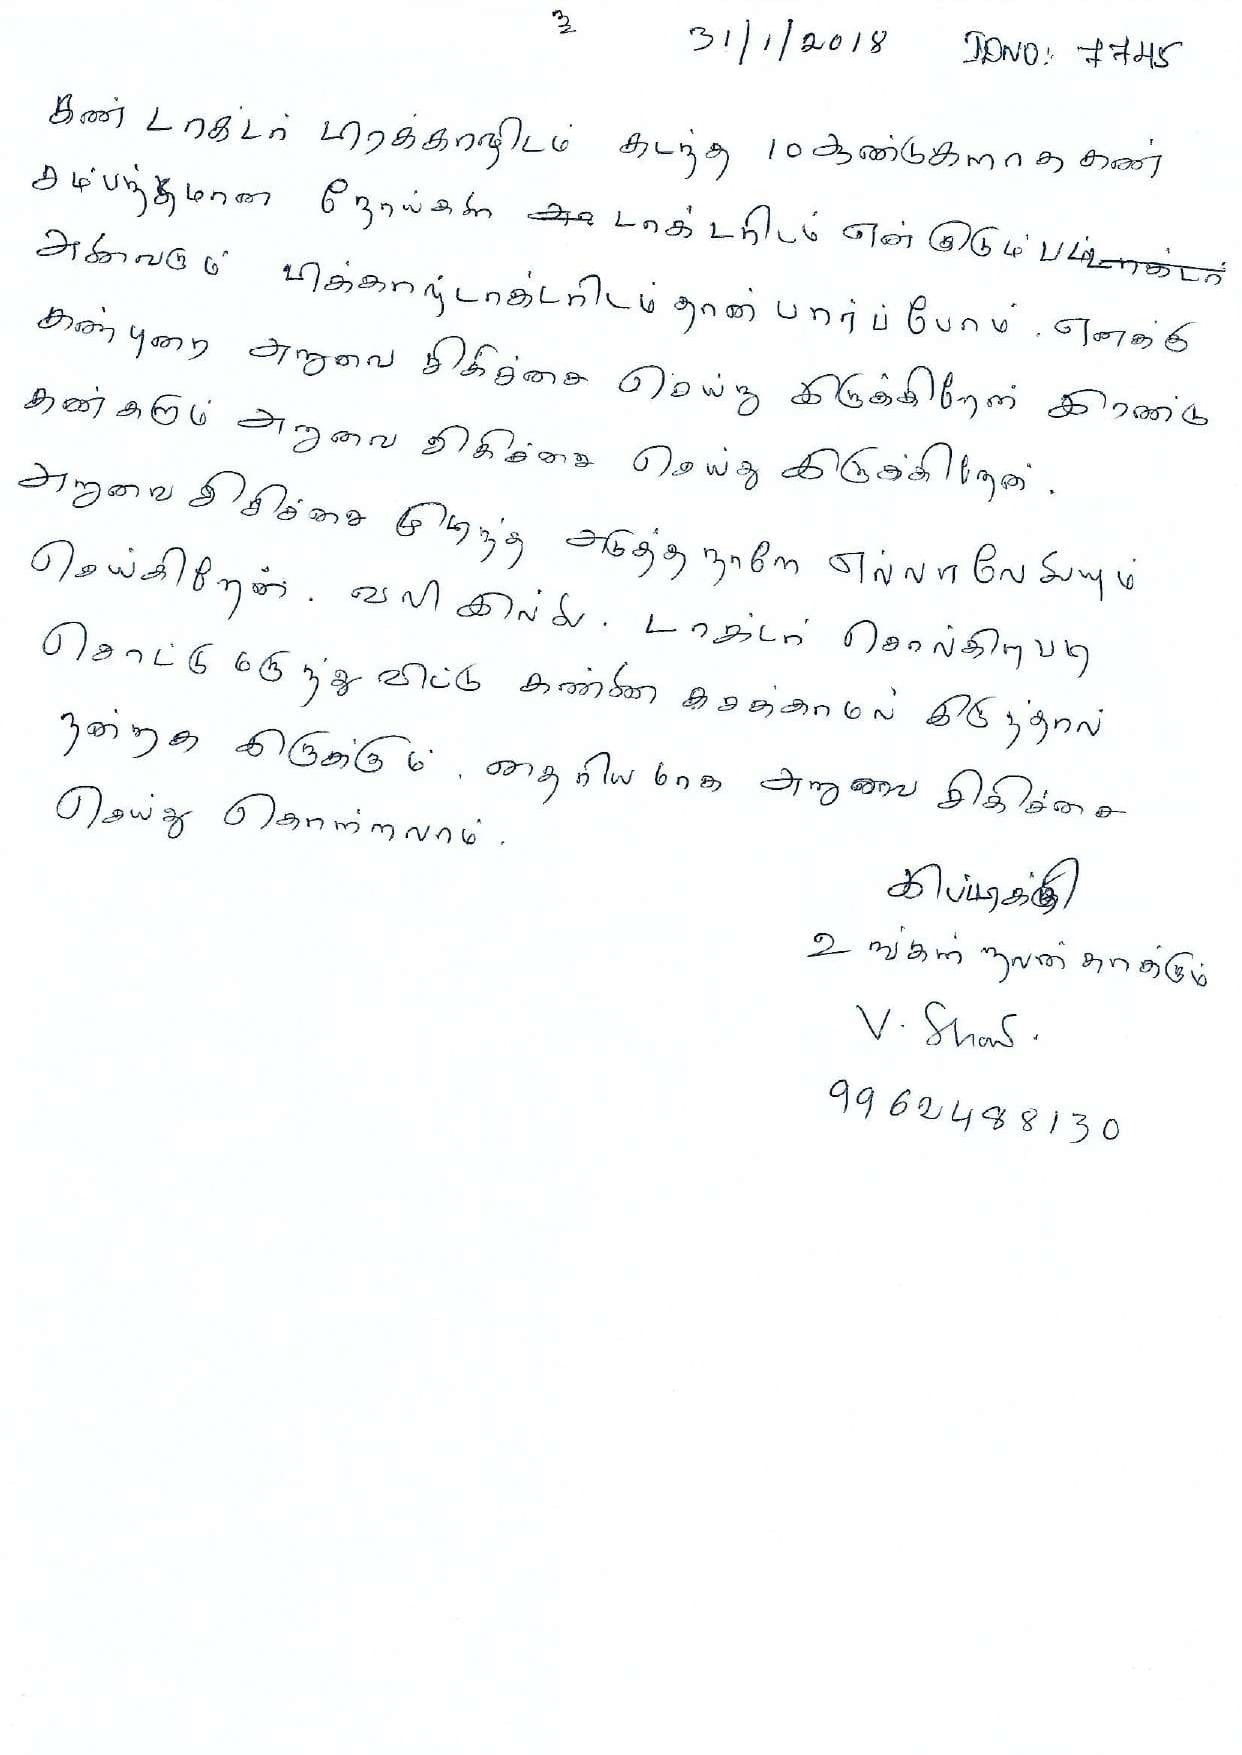 உ
31/1/2018 IDNO: 7745
கண் டாக்டர் பிரகாஷிடம் கடந்த 10 ஆண்டுகளாக கண்
சம்பந்தமான நோய்கள் டாக்டரிடம் என் குடும்பம்
அனைவரும் டாக்டரிடம் தான் பார்ப்போம். எனக்கு
கண்புரை அறுவை சிகிச்சை செய்து இருக்கிறேன் இரண்டு
கண்களும் அறுவை சிகிச்சை செய்து இருக்கிறேன்.
அறுவை சிகிச்சை முடிந்த அடுத்த நாளே எல்லா வேலையும்
செய்கிறேன். வலி இல்லை. டாக்டர் சொல்கிறபடி
சொட்டு மருந்து விட்டு கண்ணை கசக்காமல் இருந்தால்
நன்றாக இருக்கும். தைரியமாக அறுவை சிகிச்சை
செய்து கொள்ளலாம்.
இப்படிக்கு
உங்கள் நலன் காக்கும்
V.
9962488130